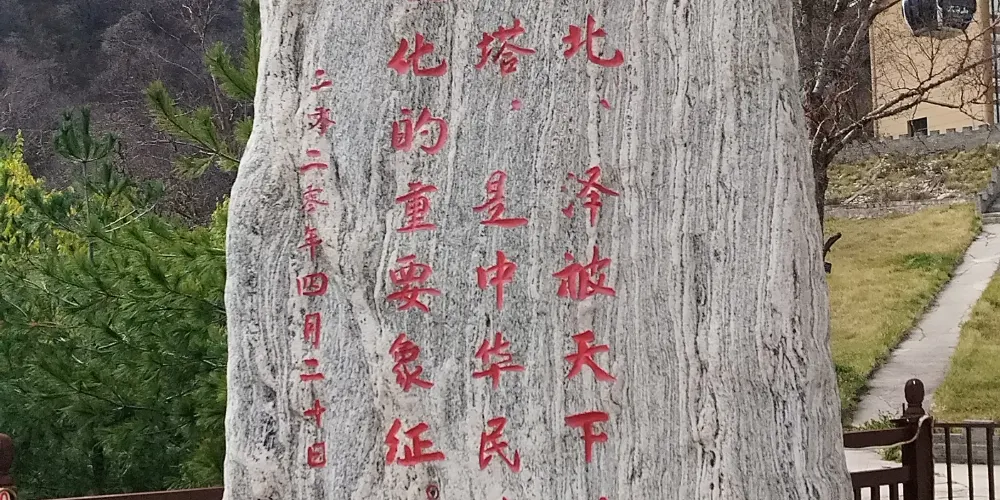 北、泽被天下
塔，是中华民
化的重要象征
二零二零年四月二十日